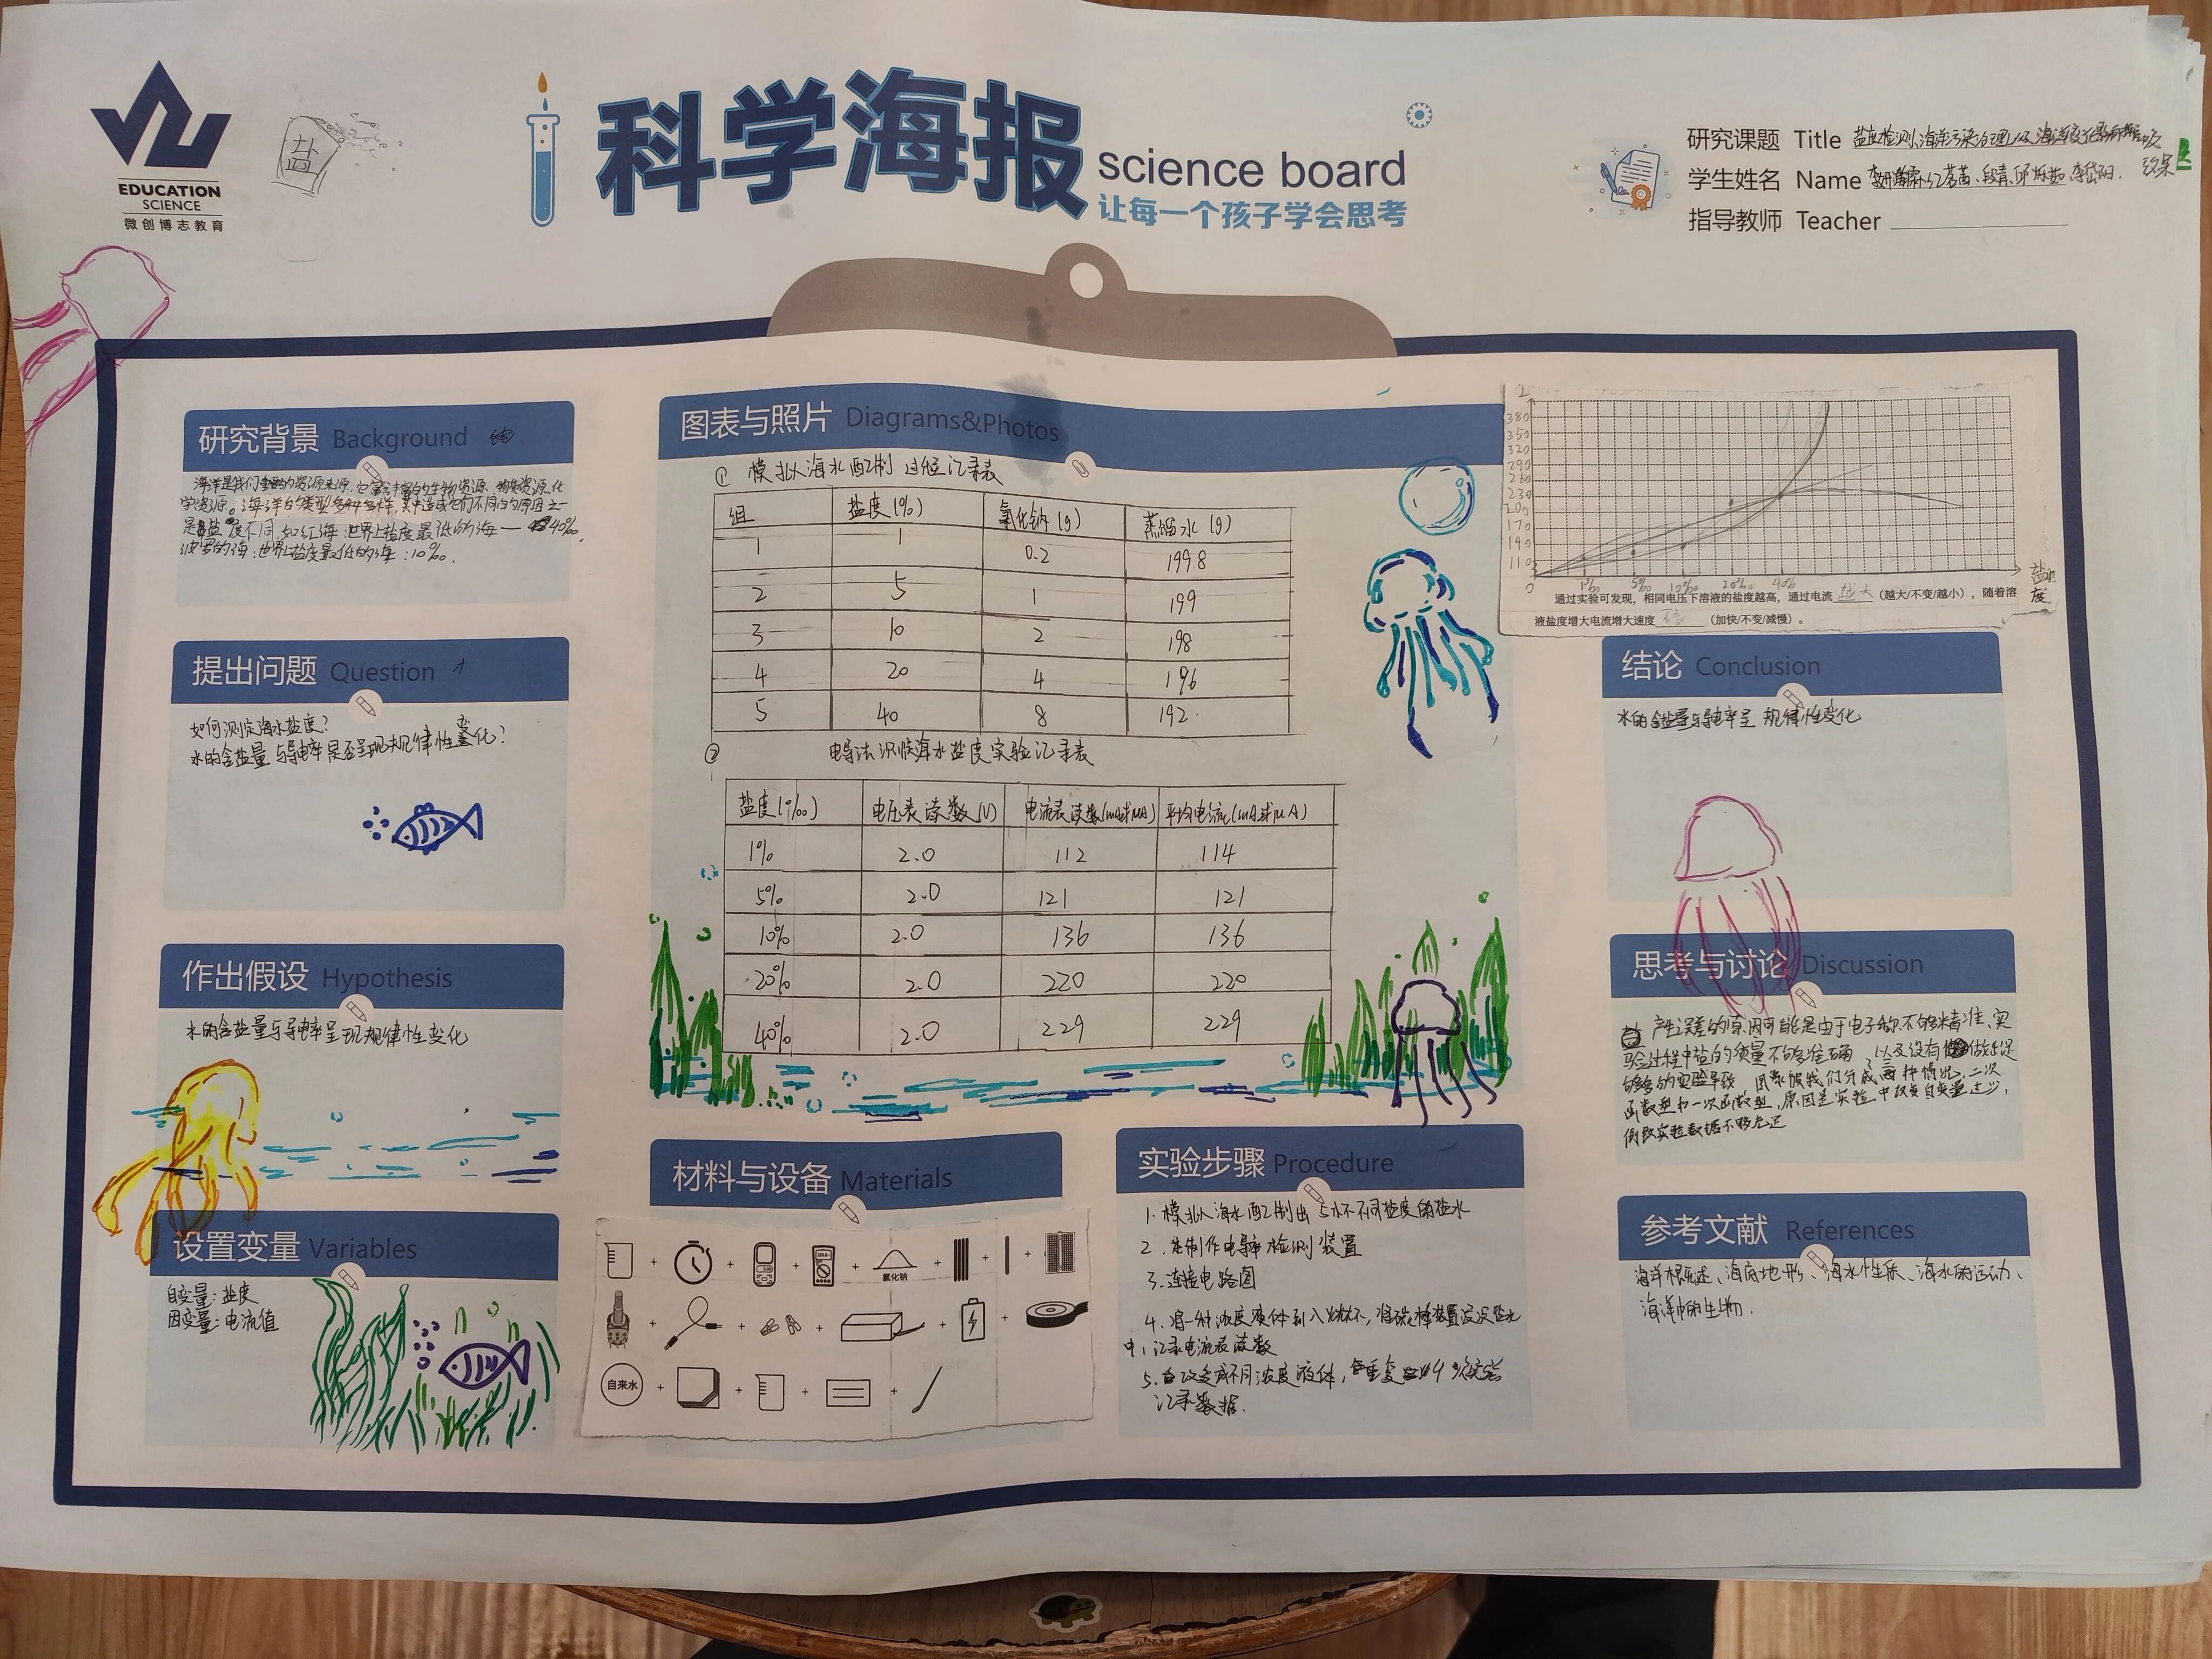 EDUCATION
SCIENCE
微创博志教育
盐
科学海报 science board
让每一个孩子学会思考
研究课题 Title 盐度检测、海洋污染治理以及海洋
学生姓名 Name
指导教师 Teacher
研究背景 Background
海洋是我们重要的资源来源,它富含丰富的生物资源、物质资源、化
学资源。海洋的类型多种多样,其中造成它们不同的原因之一
是盐度不同,如红海:世界上盐度最低的海——40‰,
波罗的海:世界上盐度最低的海:10‰.
提出问题 Question
如何测定海水盐度?
水的含盐量与导电率是否呈现规律性变化?
作出假设 Hypothesis
水的含盐量与导电率呈现规律性变化
设置变量 Variables
自变量:盐度
因变量:电流值
图表与照片 Diagrams&Photos
① 模拟海水配制过程记录表
组 盐度(%) 氯化钠(g) 蒸馏水(g)
1 1 0.2 199.8
2 5 1 199
3 10 2 198
4 20 4 196
5 40 8 192.
② 电导法识候海水盐度实验记录表
盐度(‰) 电压表读数(V) 电流表读数(mA或μA) 平均电流(mA或μA)
1% 2.0 112 114
5% 2.0 121 121
10% 2.0 136 136
20% 2.0 220 220
40% 2.0 229 229
材料与设备 Materials
氯化钠
自来水
实验步骤 Procedure
1. 模拟海水配制出5杯不同盐度的盐水
2. 制作电导率检测装置
3. 连接电路图
4. 将一种浓度液体到入烧杯,将碳棒装置浸没盐水
中,记录电流表读数
5. 改变成不同浓度液体,重复4
记录数据.
I
380
350
320
290
260
230
200
170
140
110
0 1‰ 5‰ 10‰ 20‰ 40‰
盐度
通过实验可发现,相同电压下溶液的盐度越高,通过电流 越大 (越大/不变/越小),随着溶
液盐度增大电流增大速度 不变 (加快/不变/减慢)。
结论 Conclusion
水的含盐量与导电率呈规律性变化
思考与讨论 Discussion
产生误差的原因可能是由于电子称不够精准、实
验过程中盐的质量不够准确,以及没有做足
够多的实验导致,图象被我们分成两种情况,二次
函数型和一次函数型,原因是实验中改变自变量过少,
倒致实验数据不够充足
参考文献 References
海洋概述、海底地形、海水性质、海水的运动、
海洋中的生物.